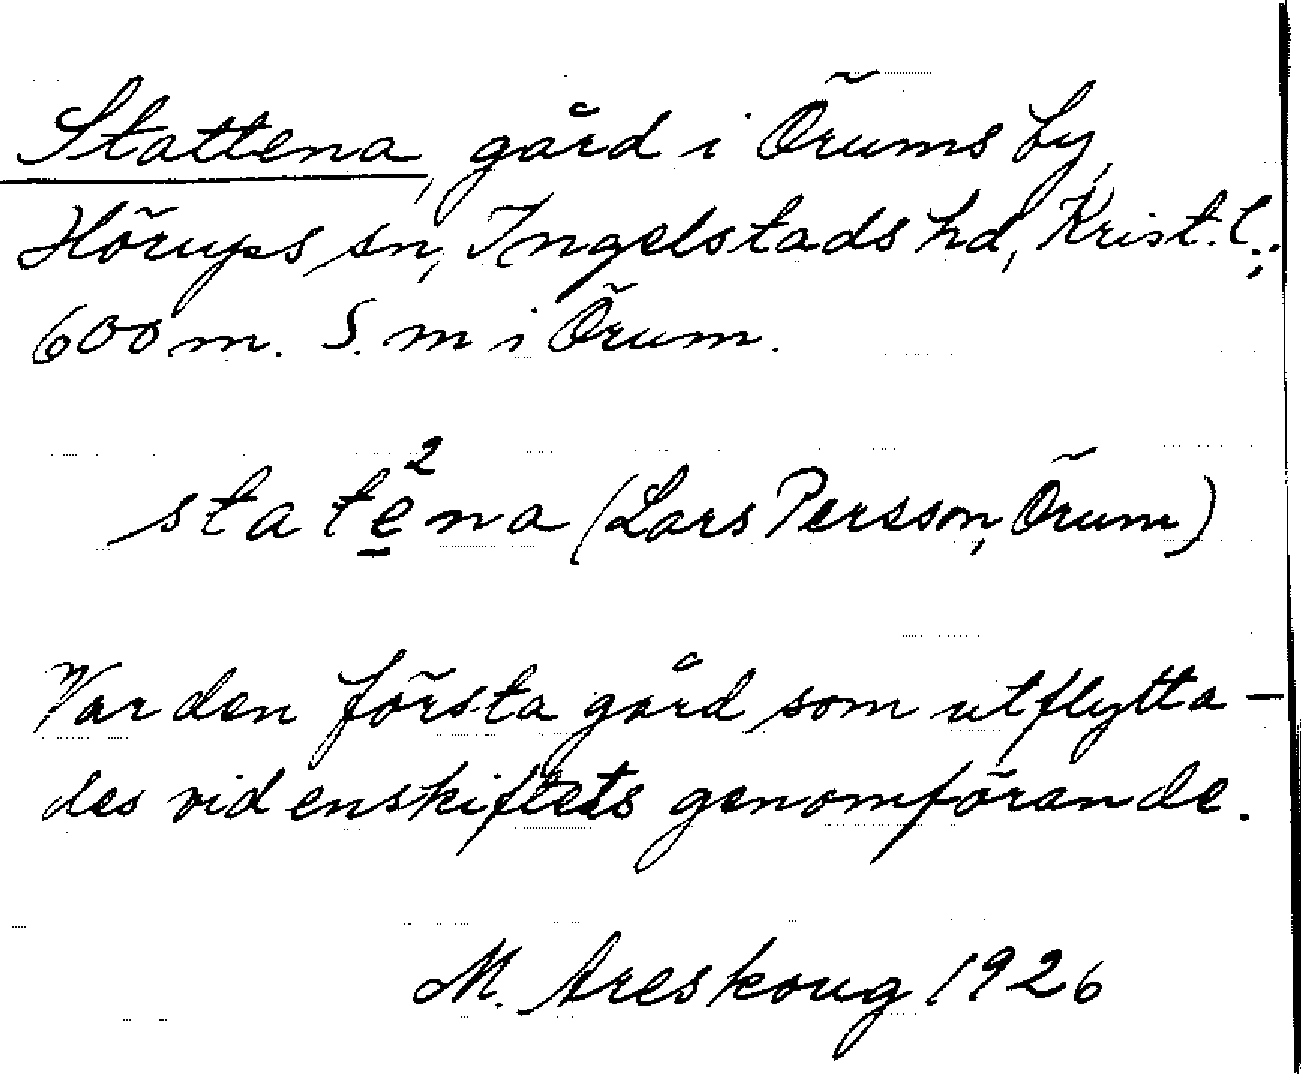 Stattena, gård i Örums by,
Hörups sn, Ingelstads hd, Krist. l.;
600 m. S. m i Örum.
statẹ²na (Lars Persson, Örum)
Var den första gård som utflytta-
des vid enskiftets genomförande.
M. Areskoug 1926